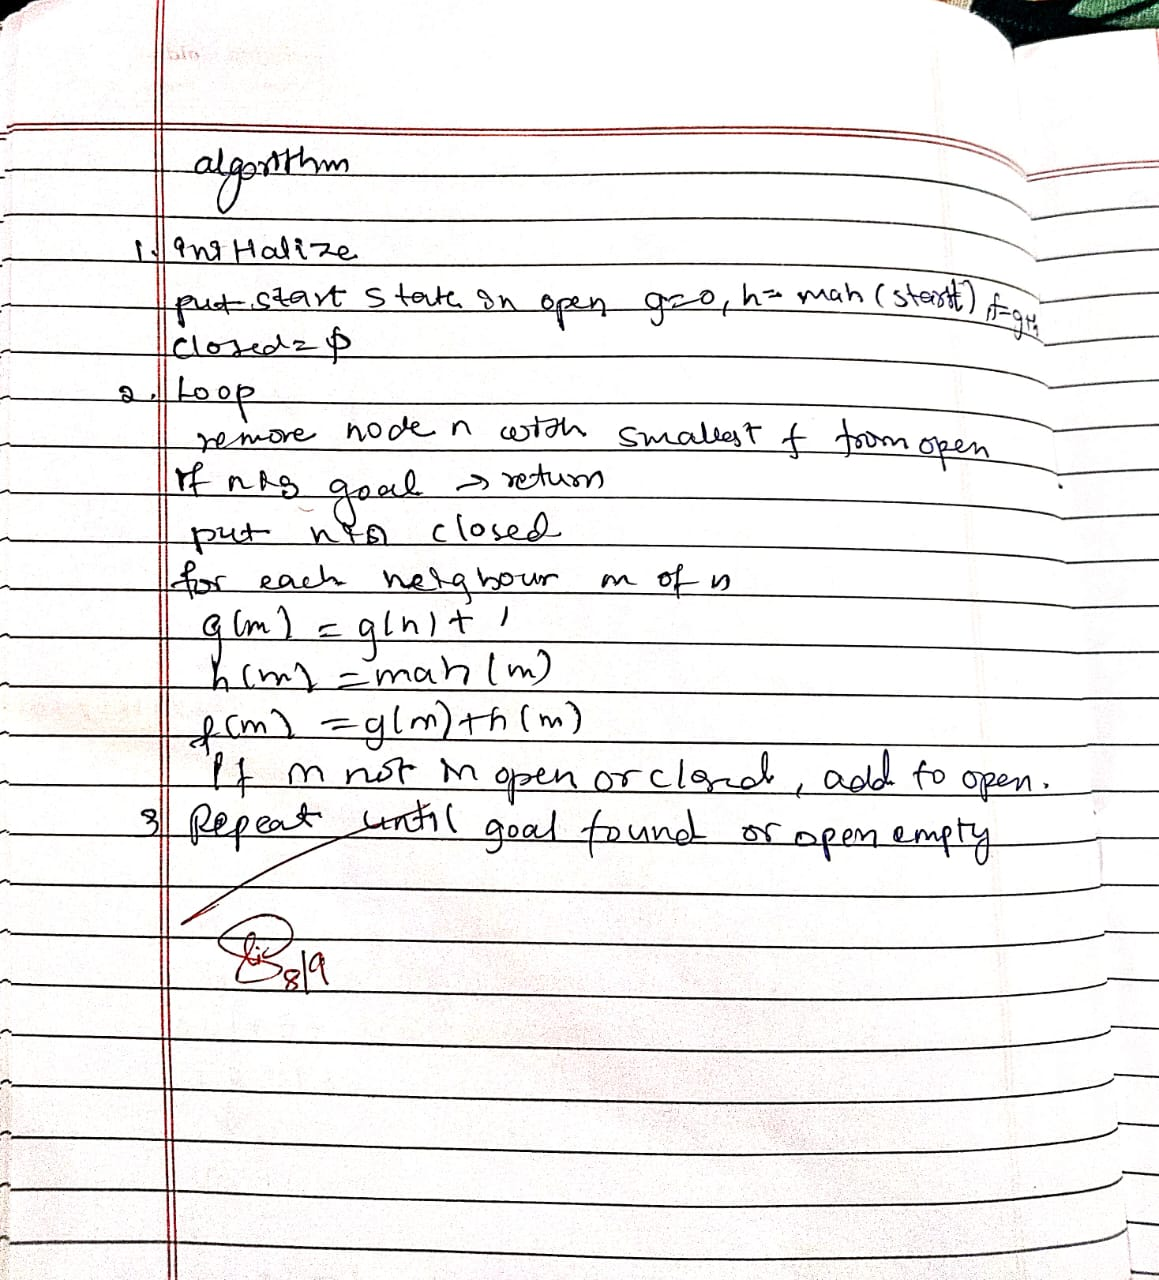 algorithm
1. Initialize
put start state in open g=0, h= mah (start) f=g+h
closed= ϕ
2. Loop
remove node n with smallest f from open
If n is goal → return
put n in closed
for each neighbour m of n
g(m) = g(n) + 1
h(m) = mah (m)
f(m) = g(m)+h(m)
If m not in open or closed, add to open.
3 Repeat until goal found or open empty
8/9